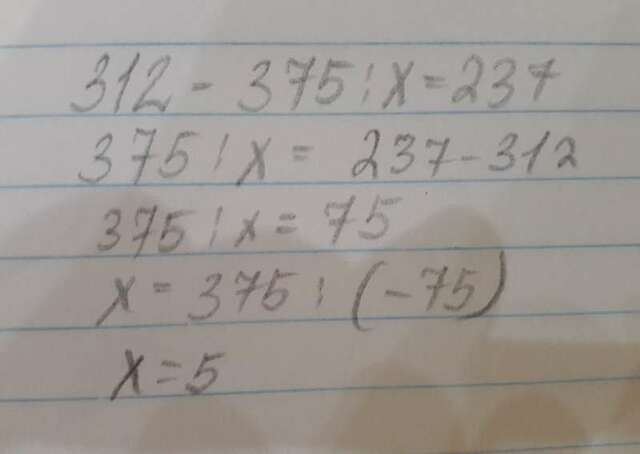 312 - 375 : x = 237
375 : x = 237 - 312
375 : x = 75
x = 375 : (-75)
x = 5